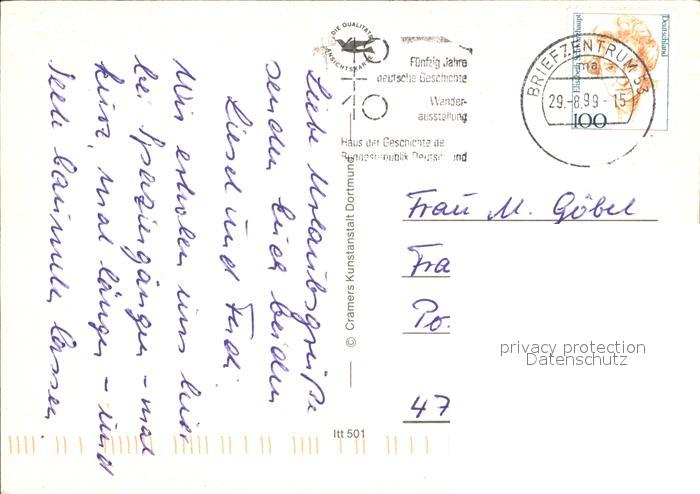 Liebe Urlaubsgrüße
senden Euch beiden
Liesel und Ferdi.
Wir erholen uns hier
bei Spaziergängen - mal
kurz, mal länger - und
Seele baumeln lassen.
DIE QUALITÄTS
ANSICHTSKARTE
Fünfzig Jahre
deutsche Geschichte
Wander-
ausstellung
Haus der Geschichte de
Bundesrepublik Deutschland
BRIEFZENTRUM 53
ma
29.-8.99-15
Deutschland
100
© Cramers Kunstanstalt Dortmund
Itt 501
Frau M. Göbel
Fra
Po.
47
privacy protection
Datenschutz